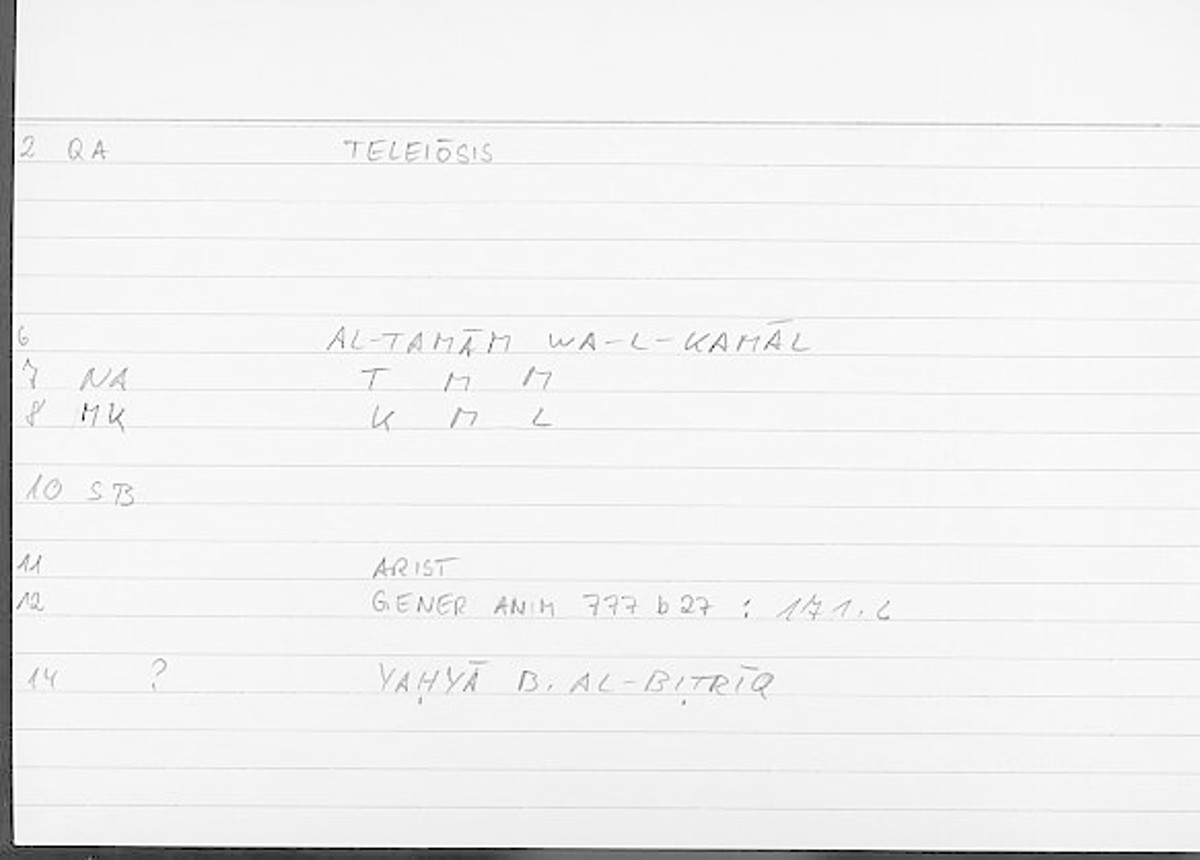 2 QA TELEIŌSIS
6 AL-TAMĀM WA-L-KAMĀL
7 NA T M M
8 MK K M L
10 SB
11 ARIST
12 GENER ANIM 777 b 27 : 171.6
14 ? YAḤYĀ B. AL-BIṬRĪQ